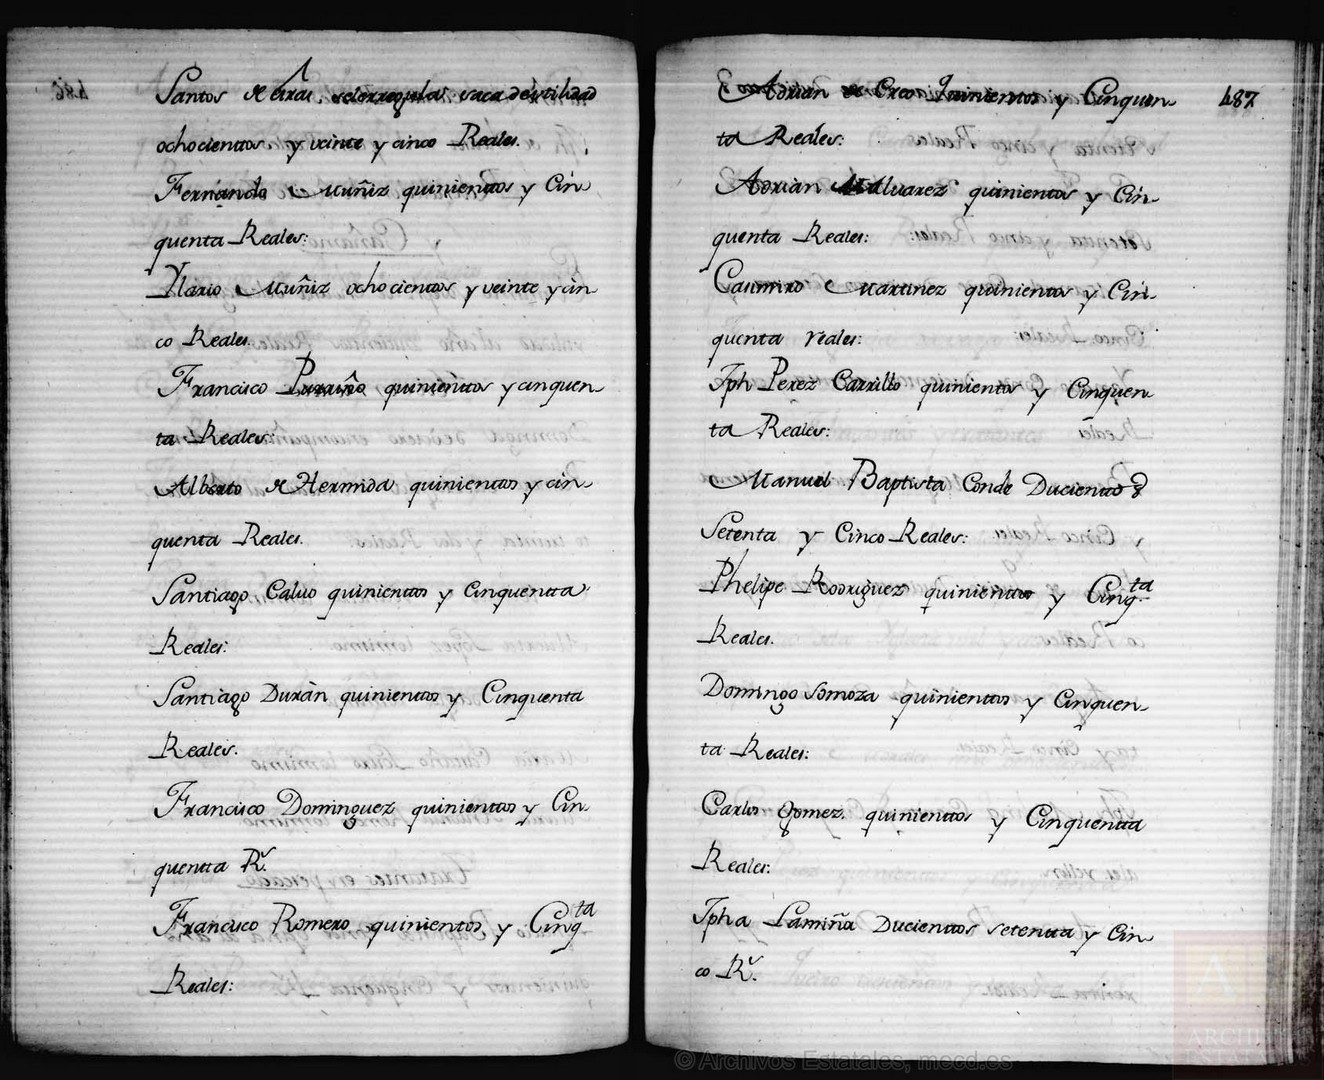 Santos de eiras se le rregula saca de Utilidad
ochocientos y veinte y cinco Reales.
Fernando Muñiz quinientos y Cin
quenta Reales:
Ylario Muñiz ochocientos y veinte y cin
co Reales.
Francisco quinientos y cinquen
ta Reales:
Alberto de Hermida quinientos y cin
quenta Reales.
Santiago Calvo quinientos y Cinquenta
Reales:
Santiago Duràn quinientos y Cinquenta
Reales.
Francisco Dominguez quinientos y Cin
quenta Rs.
Francisco Romero quinientos y Cinqta
Reales:
487
Adrian Creo Quinientos y Cinquen
ta Reales:
Adrian Alvarez quinientos y Cin
quenta Reales:
Casimiro Martinez quinientos y Cin
quenta reales:
Jph Perez Carrillo quinientos y Cinquen
ta Reales:
Manuel Baptista Conde Ducientos
Setenta y Cinco Reales:
Phelipe Rodriguez quinientos y Cinqta
Reales.
Domingo Somoza quinientos y Cinquen
ta Reales:
Carlos Gomez quinientos y Cinquenta
Reales:
Jpha Lamiña Ducientos setenta y Cin
co Rs.
© Archivos Estatales, mecd.es